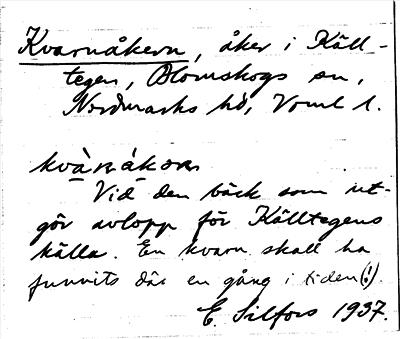 Kvarnåkern, åker i Käll-
tegen, Blomskogs sn,
Nordmarks hd, Vrml l.
kvà̱ɳåkəɳ
Vid den bäck som ut-
gör avlopp för Källtegens
källa. En kvarn skall ha
funnits där en gång i tiden(!).
E. Silfors 1937.